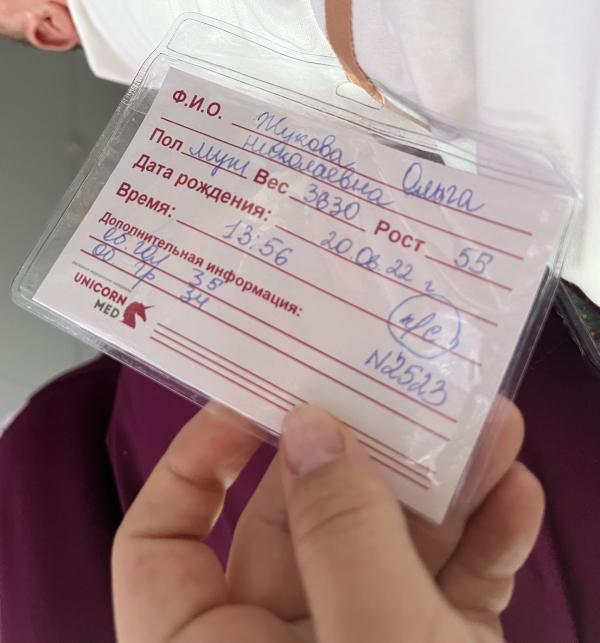 Ф.И.О. Жукова Ольга
Николаевна
Пол муж Вес 3830 Рост 55
Дата рождения: 20.08.22 г
Время: 13:56
Дополнительная информация:
об гол 35
об гр 34
р/с
N2523
UNICORN
MED